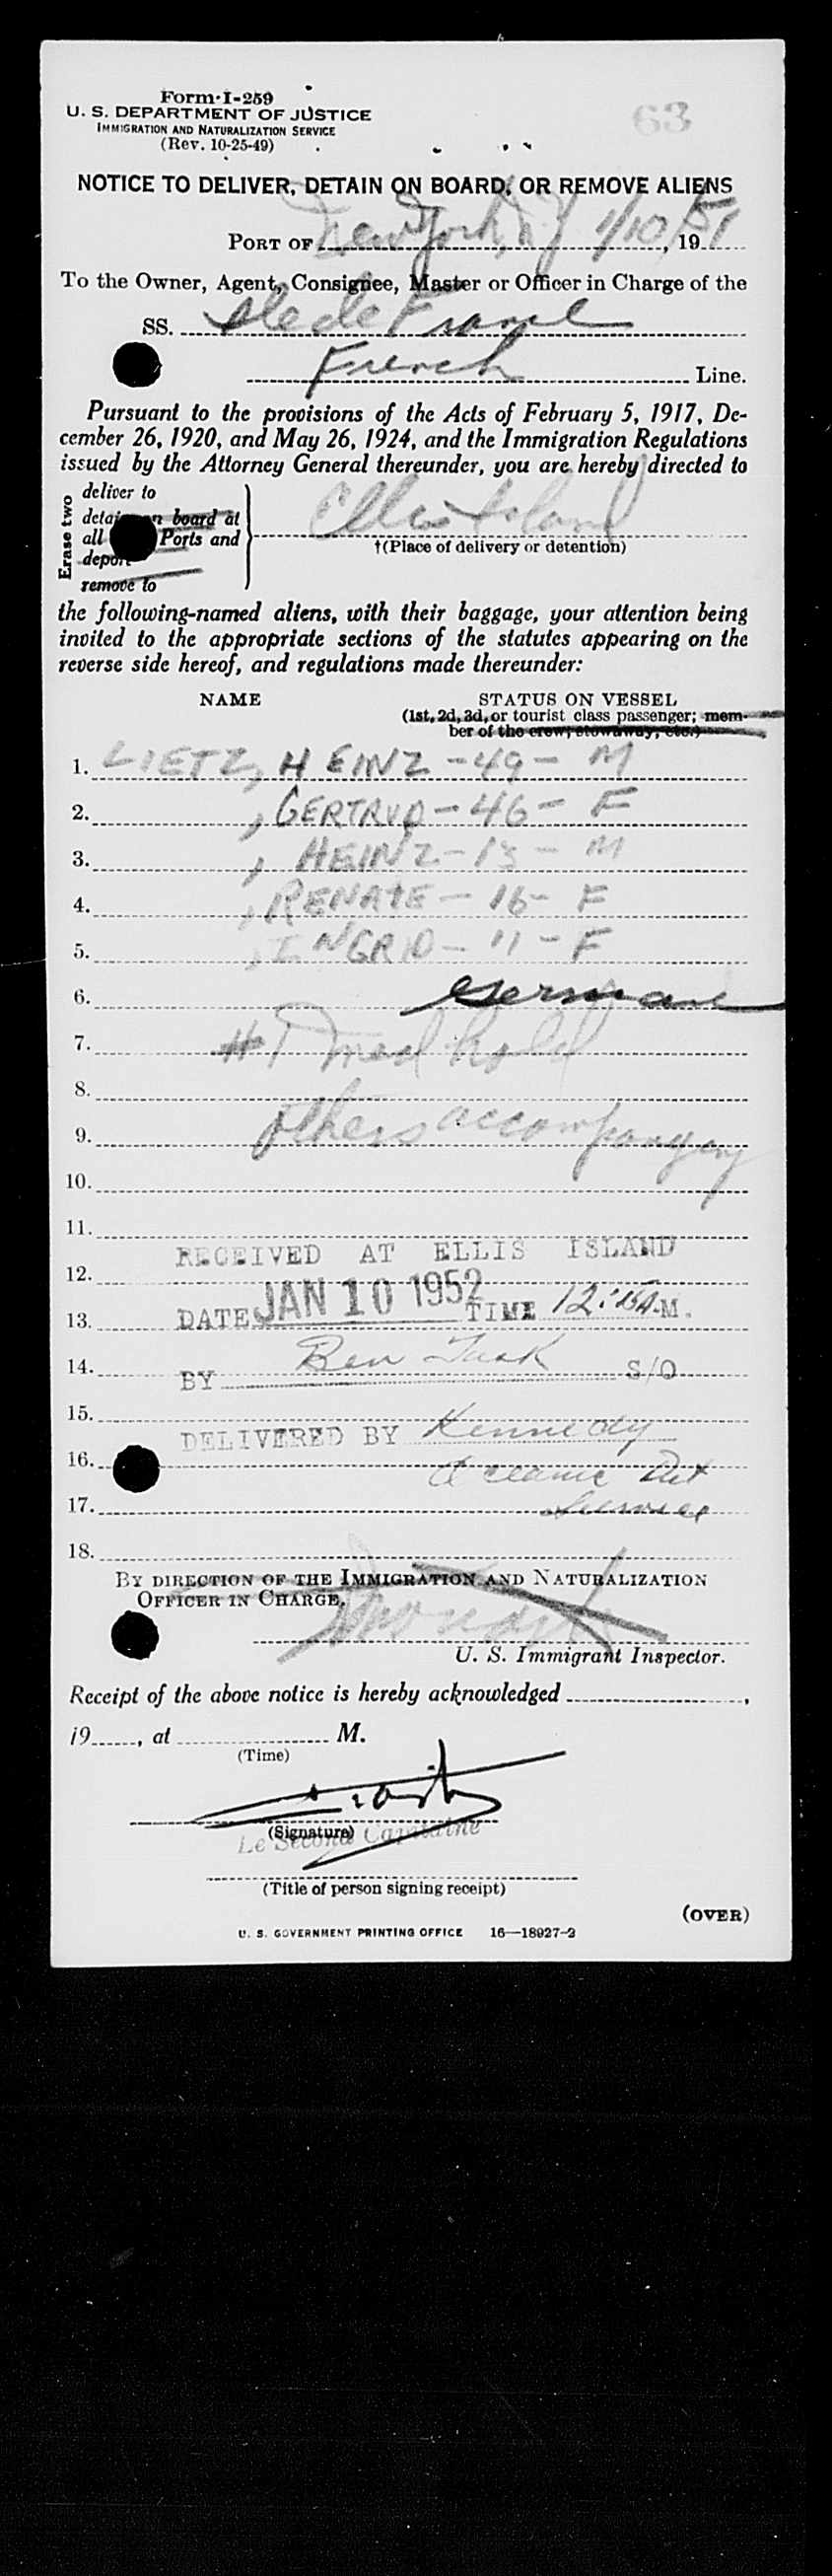 63
Form I-259
U. S. DEPARTMENT OF JUSTICE
IMMIGRATION AND NATURALIZATION SERVICE
(Rev. 10-25-49)
NOTICE TO DELIVER, DETAIN ON BOARD, OR REMOVE ALIENS
PORT OF New York, N Y 1/10, 1951
To the Owner, Agent, Consignee, Master or Officer in Charge of the
SS. Ile de France
French Line.
Pursuant to the provisions of the Acts of February 5, 1917, De-
cember 26, 1920, and May 26, 1924, and the Immigration Regulations
issued by the Attorney General thereunder, you are hereby directed to
Erase two
deliver to
detain on board at
all Ports and
deport
remove to
Ellis Island
†(Place of delivery or detention)
the following-named aliens, with their baggage, your attention being
invited to the appropriate sections of the statutes appearing on the
reverse side hereof, and regulations made thereunder:
NAME STATUS ON VESSEL
(1st, 2d, 3d, or tourist class passenger; mem-
ber of the crew; stowaway, etc.)
1. LIETZ, HEINZ - 49 - M
2. , GERTRUD - 46 - F
3. , HEINZ - 13 - M
4. , RENATE - 16 - F
5. , INGRID - 11 - F
6. German
7. #1 med hold
8.
9. others accompanying
10.
11.
RECEIVED AT ELLIS ISLAND
12.
13. DATE JAN 10 1952 TIME 12:15 A.M.
14. BY Ben S/O
15.
DELIVERED BY Kennedy
16. Oceanic Det
17. Services
18.
BY DIRECTION OF THE IMMIGRATION AND NATURALIZATION
OFFICER IN CHARGE.
U. S. Immigrant Inspector.
Receipt of the above notice is hereby acknowledged ,
19 , at M.
(Time)
(Signature)
Le Second Capitaine
(Title of person signing receipt)
(OVER)
U. S. GOVERNMENT PRINTING OFFICE 16—18927-2